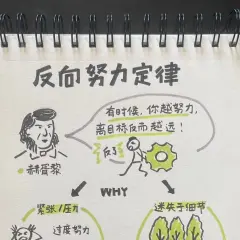 反向努力定律
有时候，你越努力，
离目标反而越远！
反了
赫胥黎
WHY
紧张/压力
迷失于细节
过度努力